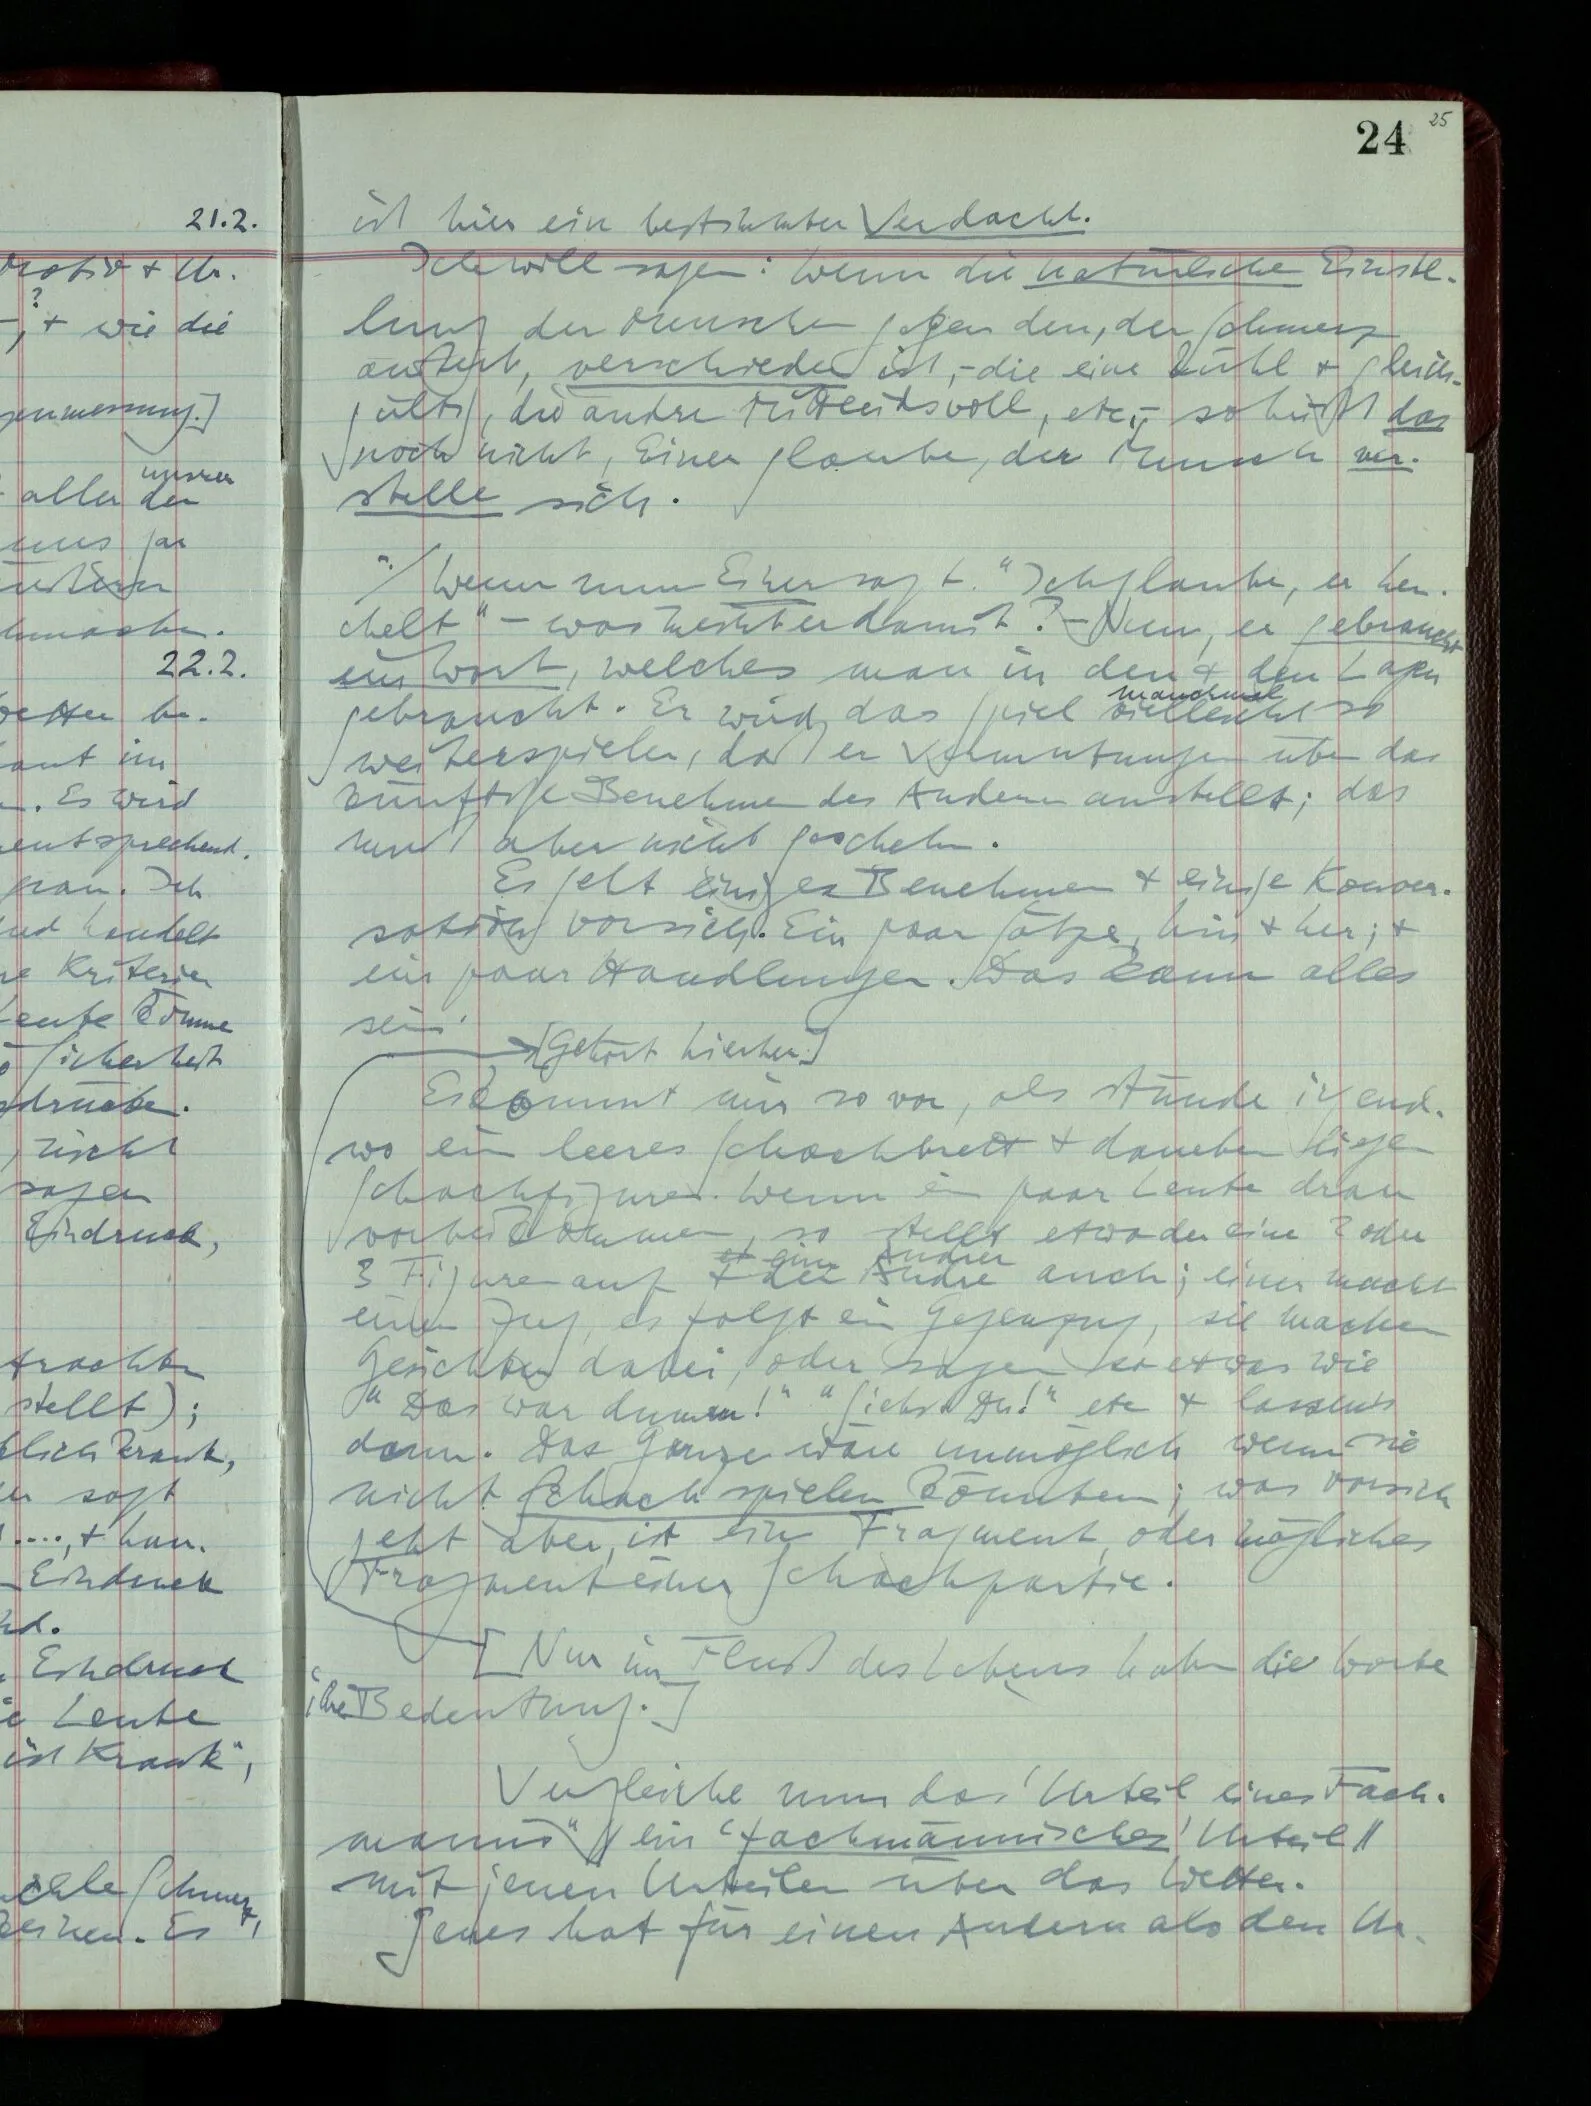 21.2.
+ Ur.
?
-, + wie die
genmessung.]
unsrer
aller den
uns gar
22.2.
Wetter be-
. Es wird
entsprechend.
genau. Ich
und handelt
Kriterien
Leute könne
Sicherheit
sdrücken.
nicht
sagen
Eindruck,
trachten
stellt);
klich krank,
er sagt
....., + han-
Eindruck
nd.
Eindruck
Leute
ist krank",
Schmerz,
keinen. Es
24
25
ist hier ein bestimmter Verdacht.
Ich will sagen: Wenn die natürliche Einstel-
lung der Menschen gegen den, der Schmerz
äußert, verschieden ist, – die eine kühl + gleich-
gültig, die andre mitleidsvoll, etc, – so heißt das
noch nicht, Einer glaube, der Mensch ver-
stelle sich.
Wenn nun Einer sagt: "Ich glaube, er heu-
chelt" – was meint er damit? – Nun, er gebraucht
ein Wort, welches man in den + den Lagen
manchmal
gebraucht. Er wird das Spiel vielleicht so
weiterspielen, daß er Vermutungen über das
künftige Benehmen des Andern anstellt; das
muß aber nicht geschehn.
Es geht einiges Benehmen + einige Konver-
sation vor sich. Ein paar Sätze, hin + her; +
ein paar Handlungen. Das kann alles
sein.
[Gehört hierher.]
Es kommt mir so vor, als stünde irgend-
wo ein leeres Schachbrett + daneben liegen
Schachfiguren. Wenn ein paar Leute dran
vorbeikommen, so stellt etwa der eine 2 oder
ein Andrer
3 Figuren auf + der Andre auch; einer macht
einen Zug, es folgt ein Gegenzug, sie machen
Gesichter dabei, oder sagen so etwas wie
"Das war dumm!" "Siehst Du!" etc + lassen's
dann. Das Ganze wäre unmöglich wenn sie
nicht Schach spielen könnten; was vor sich
geht aber, ist ein Fragment, oder mögliches
Fragment einer Schachpartie.
[Nur im Fluß des Lebens haben die Worte
ihre Bedeutung.]
Vergleiche nun das 'Urteil eines Fach-
manns' // ein 'fachmännisches' Urteil //
mit jenen Urteilen über das Wetter.
Jenes hat für einen Andern als den Ur-